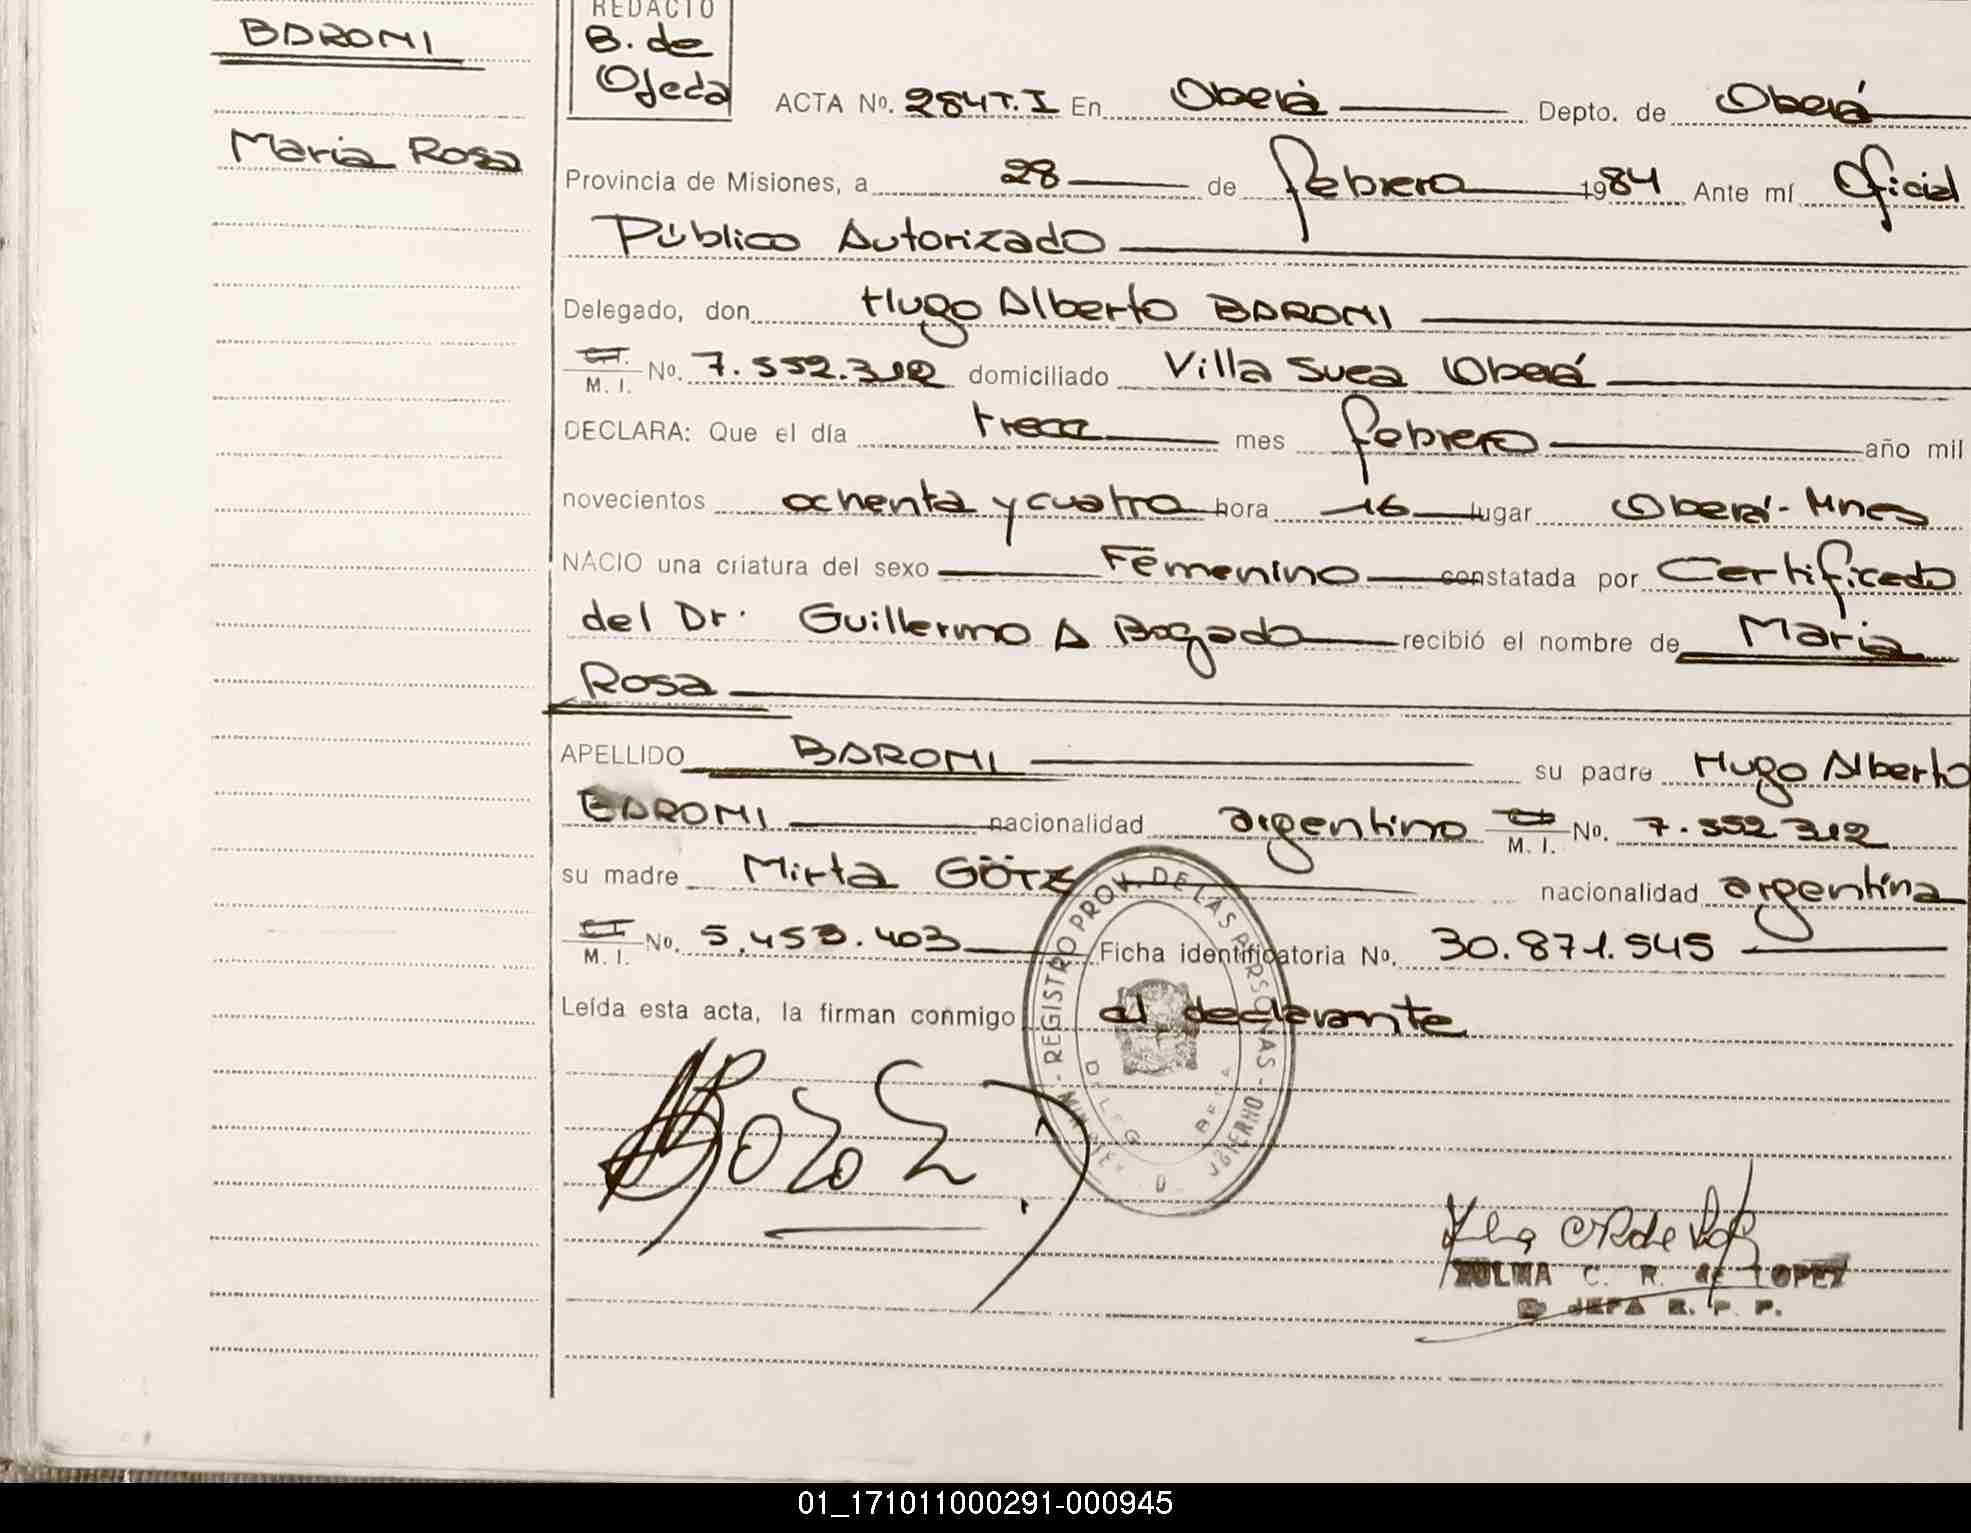 REDACTO
BARONI
B. de
Ojeda
Maria Rosa
ACTA No. 284 T. I En Oberá Depto. de Oberá
Provincia de Misiones, a 28 de febrero 1984 Ante mí Oficial
Público Autorizado
Delegado, don Hugo Alberto BARONI
C.I.
M. I. No. 7.552.312 domiciliado Villa Suea Oberá
DECLARA: Que el día trece mes febrero año mil
novecientos ochenta y cuatro hora 16 lugar Oberá - Mnes
NACIO una criatura del sexo Femenino constatada por Certificado
del Dr. Guillermo A Bogado recibió el nombre de Maria
Rosa
APELLIDO BARONI su padre Hugo Alberto
BARONI nacionalidad argentino M. I. No. 7.552.312
su madre Mirta GÖTZ nacionalidad argentina
C.I.
M. I. No. 5.453.403 Ficha identificatoria No. 30.871.545
Leída esta acta, la firman conmigo el declarante
REGISTRO PROV. DE LAS PERSONAS
ZULMA C. R. de LOPEZ
JEFA R. P. P.
01_171011000291-000945